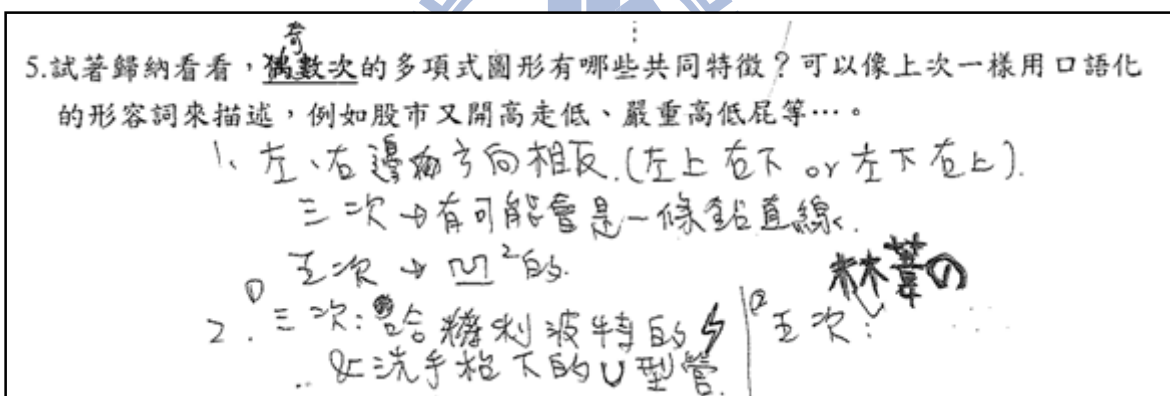 奇
5.試著歸納看看，偶數次的多項式圖形有哪些共同特徵？可以像上次一樣用口語化
的形容詞來描述，例如股市又開高走低、嚴重高低屁等…。
1、左、右邊的方向相反.(左上右下 or 左下右上).
三次→有可能會是一條鉛直線.
五次→凹²的.
2. ①三次:哈利波特的
&洗手枱下的U型管.
②五次: